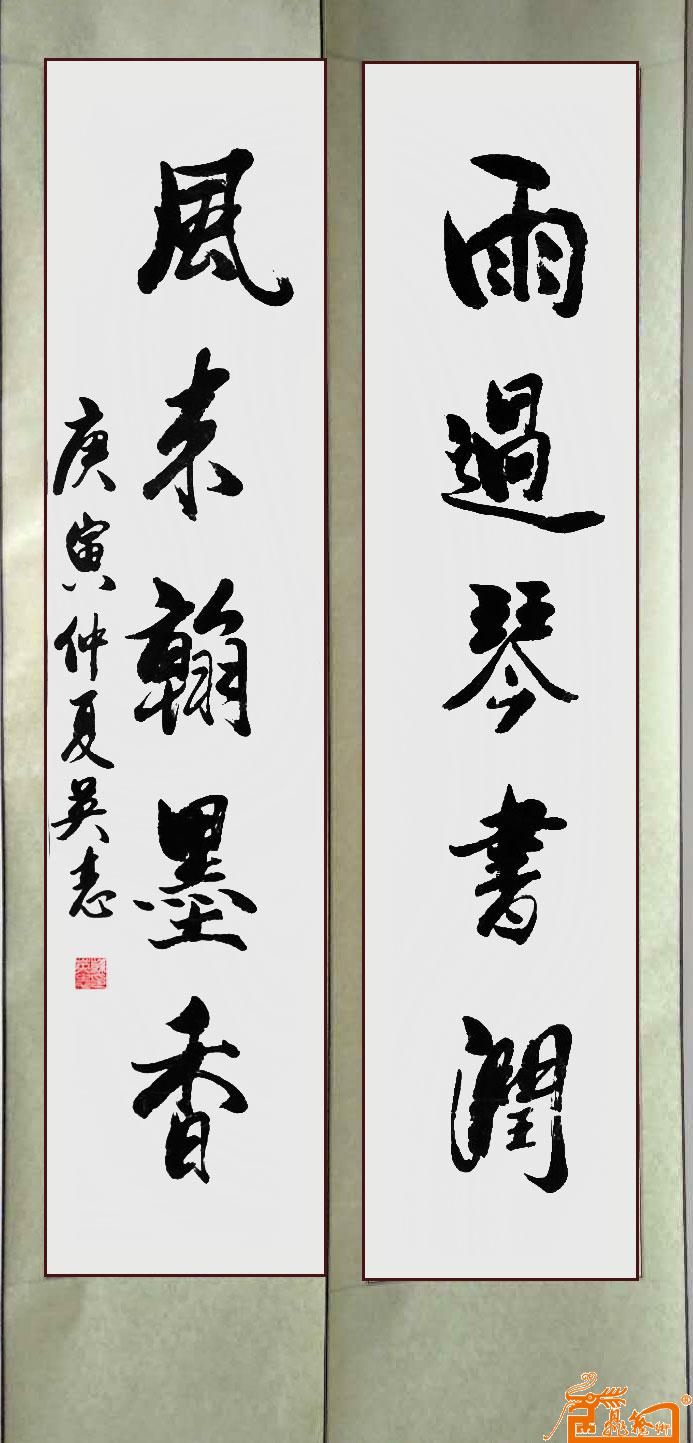 雨過琴書潤
風来翰墨香
庚寅仲夏吳志